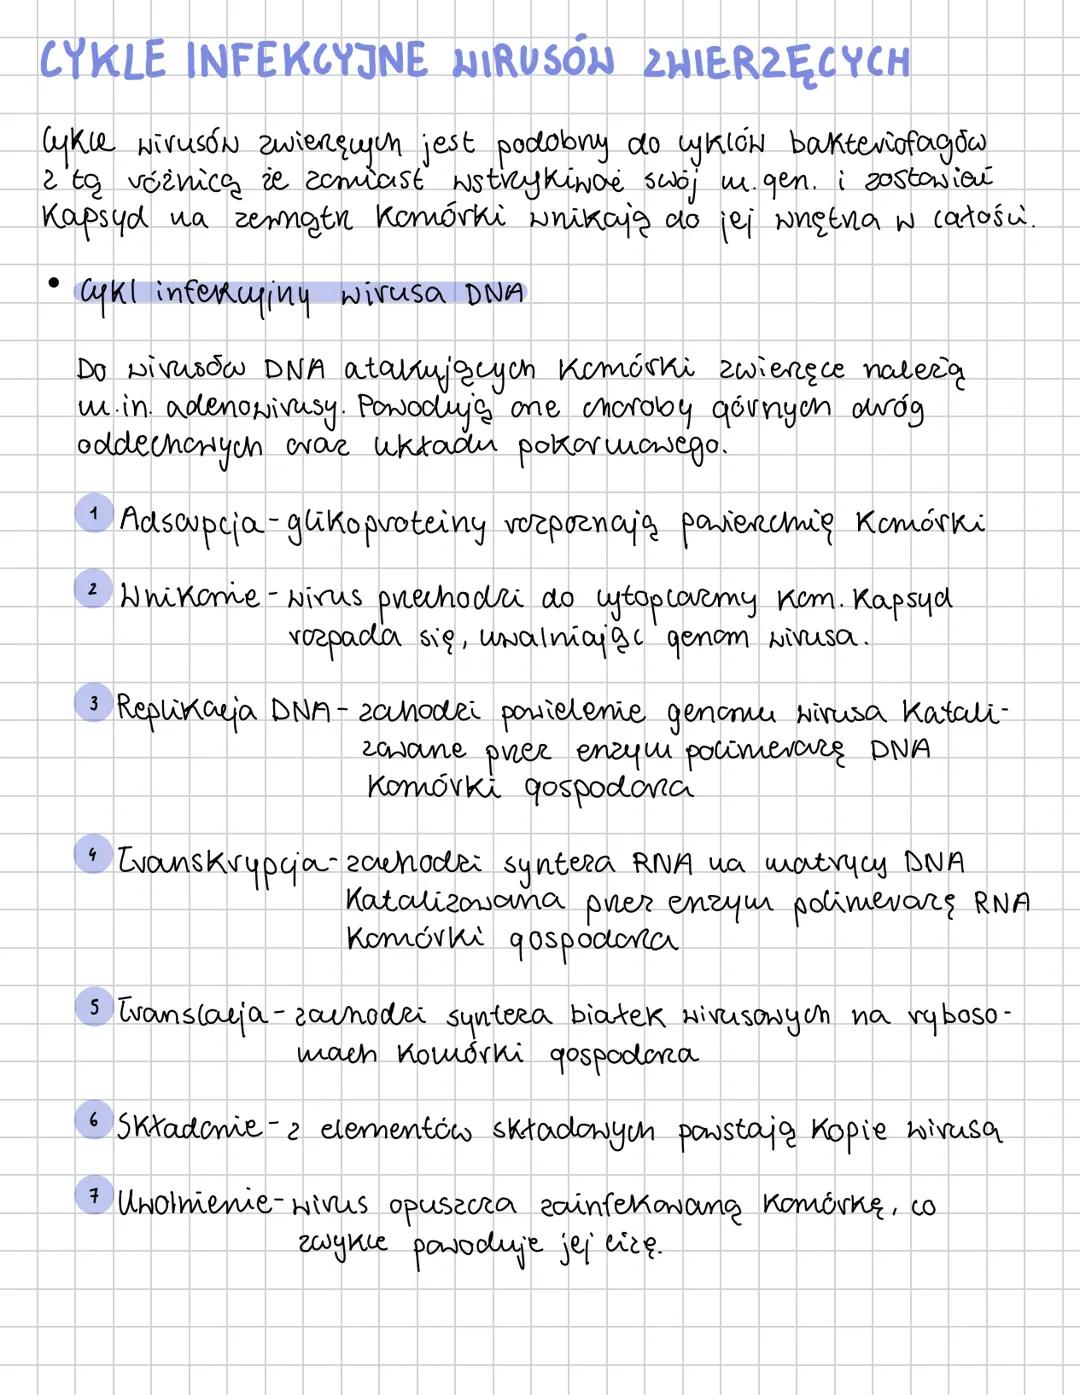 CYKLE INFEKCYJNE WIRUSÓW ZWIERZĘCYCH
Cykle wirusów zwierzęcych jest podobny do cyklów bakteriofagów
z tą różnicą że zamiast wstrzykiwać swój m.gen. i zostawiać
kapsyd na zewnątrz komórki wnikają do jej wnętrza w całości.
• Cykl infekcyjny wirusa DNA
Do wirusów DNA atakujących komórki zwierzęce należą
m.in. adenowirusy. Powodują one choroby górnych dróg
oddechowych oraz układu pokarmowego.
1 Adsorpcja - glikoproteiny rozpoznają powierzchnię komórki
2 Wnikanie - wirus przechodzi do cytoplazmy kom. Kapsyd
rozpada się, uwalniając genom wirusa.
3 Replikacja DNA - zachodzi powielenie genomu wirusa katali-
zowane przez enzym polimerazę DNA
komórki gospodarza
4 Transkrypcja - zachodzi synteza RNA na matrycy DNA
katalizowana przez enzym polimerazę RNA
komórki gospodarza
5 Translacja - zachodzi synteza białek wirusowych na ryboso-
mach komórki gospodarza
6 Składanie - z elementów składowych powstają kopie wirusa
7 Uwolnienie - wirus opuszcza zainfekowaną komórkę, co
zwykle powoduje jej lizę.